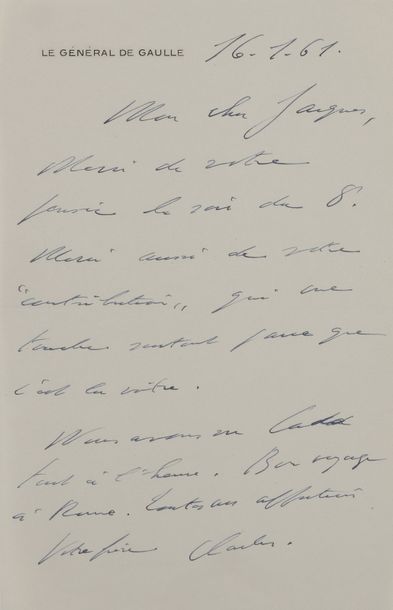 LE GÉNÉRAL DE GAULLE 16-1-61.
Mon cher Jacques,
Merci de votre
pensée le soir du 8.
Merci aussi de votre
"contribution", qui me
touche surtout parce que
c'est la vôtre.
Nous avons vu
tout à l'heure. Bon voyage
à Rome. Toutes nos affections
Votre frère Charles.